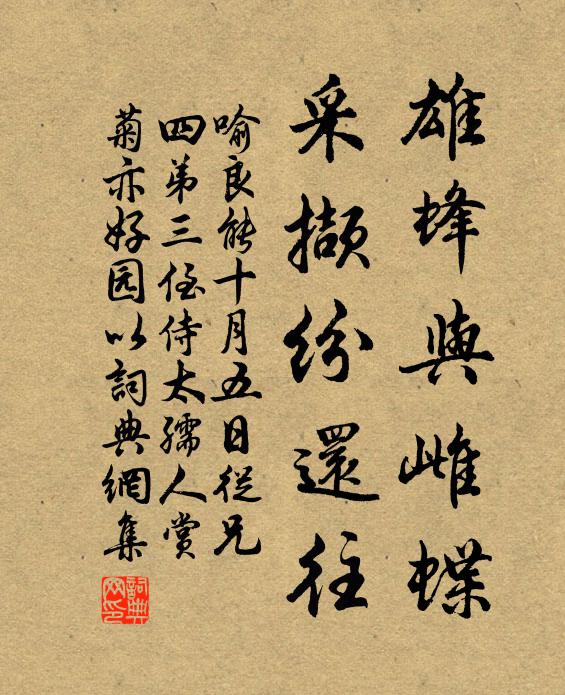 雄蜂與雌蝶
采擷紛還往
喻良能十月五日從兄
四弟三侄侍太孺人賞
菊亦好园以詞典網集
詞典网印